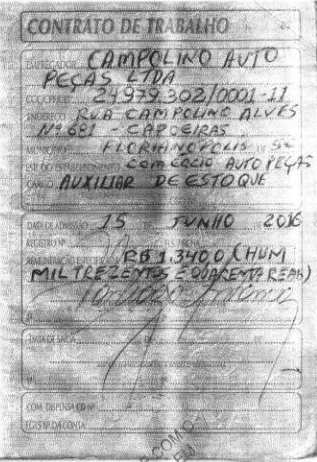 CONTRATO DE TRABALHO
EMPREGADOR CAMPOLINO AUTO
PEÇAS LTDA
24979.302/0001-11
ENDEREÇO RUA CAMPOLINO ALVES
Nº 681 - CAPOEIRAS
MUNICÍPIO FLORIANÓPOLIS SC
ESP. DO ESTABELECIMENTO COMÉRCIO AUTO PEÇAS
CARGO AUXILIAR DE ESTOQUE
DATA DE ADMISSÃO 15 DE JUNHO 2016
REGISTRO Nº FLS. / FICHA
REMUNERAÇÃO ESPECIFICADA R$ 1.340,0 (HUM
MIL TREZENTOS E QUARENTA REAIS)
DATA DE SAÍDA DE
COM. DISPENSA CD Nº
FGTS Nº DA CONTA